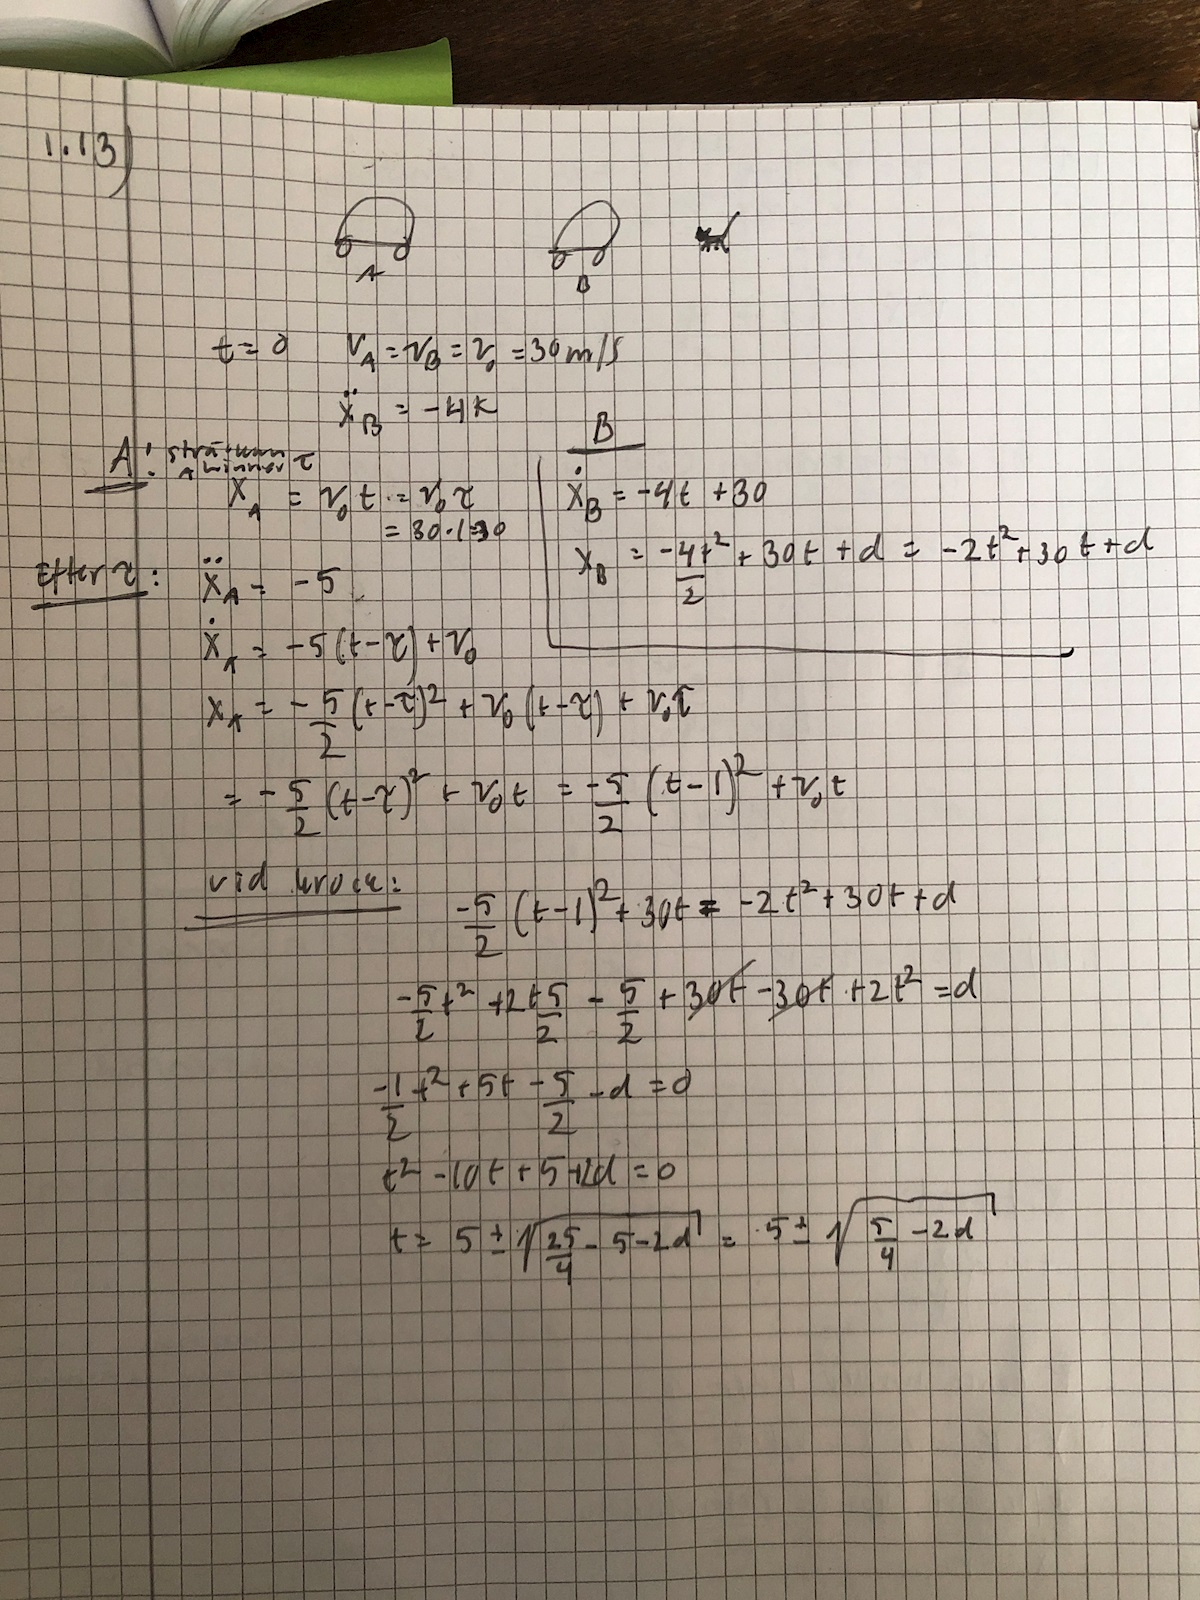 1.13)
A B
t = 0 v_A = v_B = v_0 = 30 m/s
ẍ_B = -4
A: sträckan A hinner τ
x_A = v_0 t = v_0 τ
= 30·1=30
Efter τ: ẍ_A = -5
ẋ_A = -5(t-τ) + v_0
x_A = -5/2 (t-τ)² + v_0 (t-τ) + v_0 τ
= -5/2 (t-τ)² + v_0 t = -5/2 (t-1)² + v_0 t
B
ẋ_B = -4t + 30
x_B = -4t²/2 + 30t + d = -2t² + 30t + d
vid krock:
-5/2 (t-1)² + 30t = -2t² + 30t + d
-5/2 t² + 2t 5/2 - 5/2 + 30t - 30t + 2t² = d
-1/2 t² + 5t - 5/2 - d = 0
t² - 10t + 5 + 2d = 0
t = 5 ± √(25/4 - 5 - 2d) = 5 ± √(5/4 - 2d)